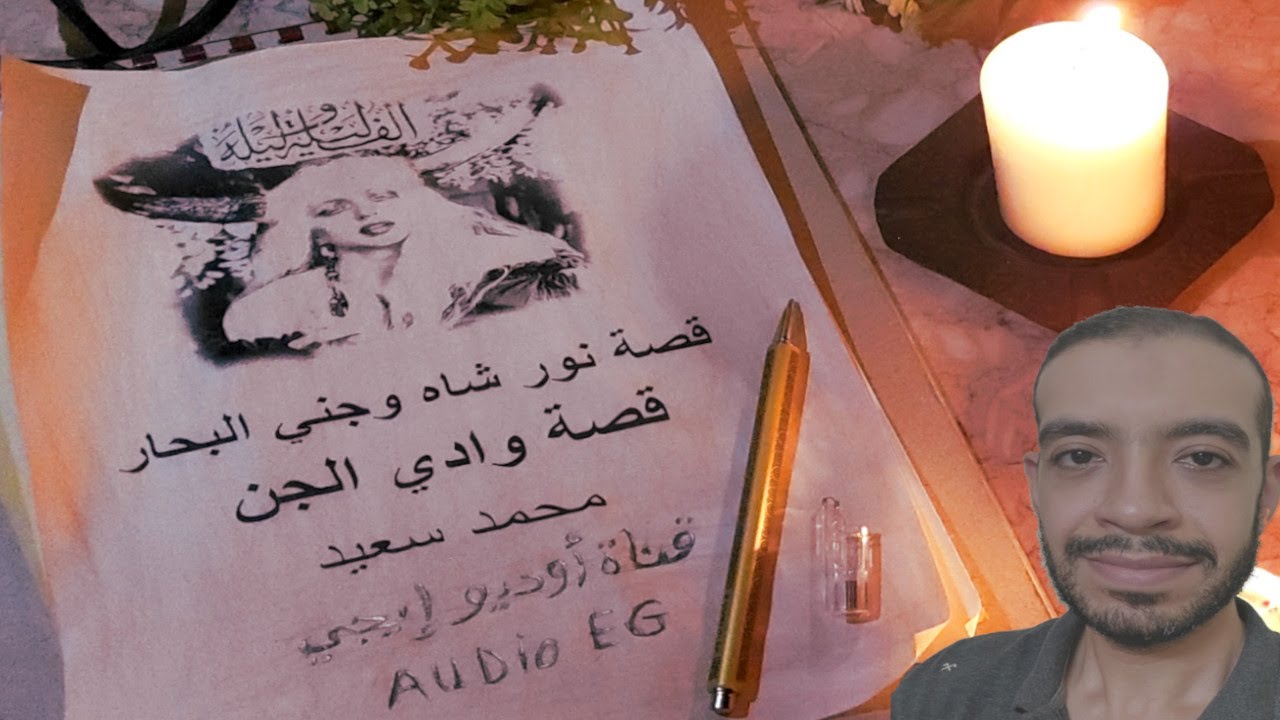 الف ليلة وليلة
قصة نور شاه وجني البحار
قصة وادي الجن
محمد سعيد
قناة أوديو إيجي
AUDio EG